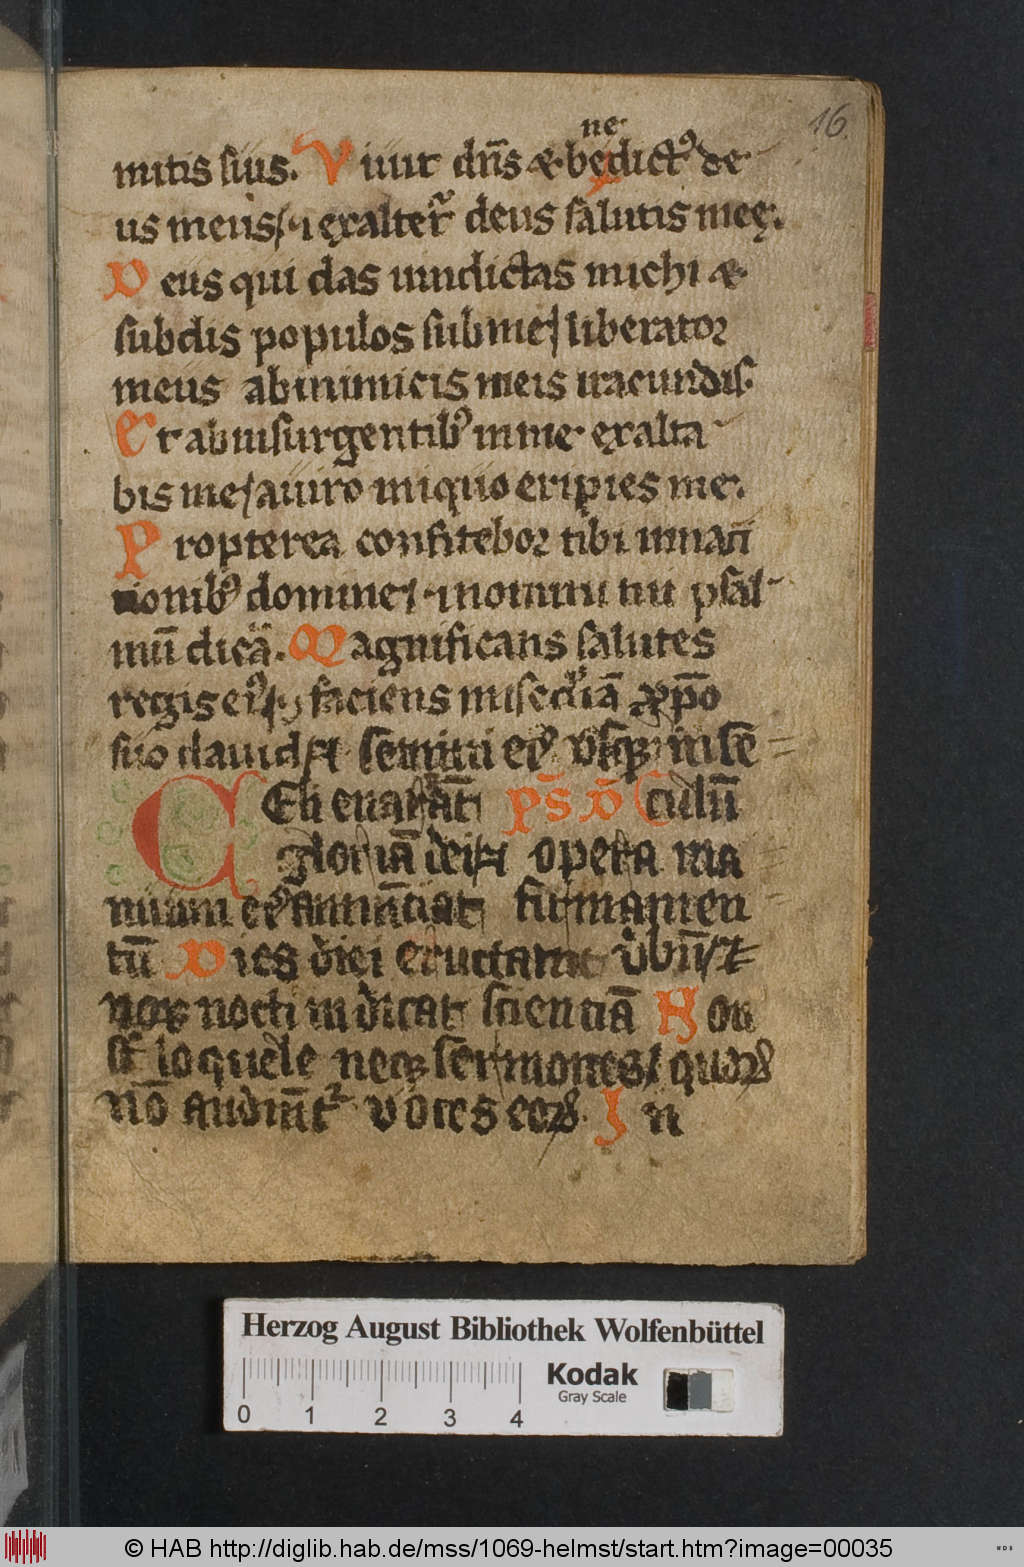 16
ne
mitis suis. Viuit dn̄s & bedictꝰ de
us meus / ⁊ exaltet᷑ deus salutis meę.
Deus qui das uindictas michi &
subdis populos sub me / liberator
meus ab inimicis meis iracundis.
Et ab insurgentibꝰ in me exalta
bis me / a uiro iniquo eripies me.
Propterea confitebor tibi in nati
onibꝰ domine / ⁊ nomini tuo psal
mū dicā. Magnificans salutes
regis eiꝰ / ⁊ faciens mis̄c̄diā xp̄o
suo dauid / ⁊ semini eiꝰ vsqꝫ in sc̄
Celi enarrāt p̄s d̄ culū
gloriā dei / ⁊ opera ma
nuum eiꝰ annūciat firmamen
tū Dies diei eructauit v̄bū / ⁊
nox nocti indicat sciētiā Non
st̄ loquele neqꝫ sermones / quoꝝ
nō audiūt᷑ voces eoꝝ. In
Herzog August Bibliothek Wolfenbüttel
Kodak
Gray Scale
0 1 2 3 4
© HAB http://diglib.hab.de/mss/1069-helmst/start.htm?image=00035